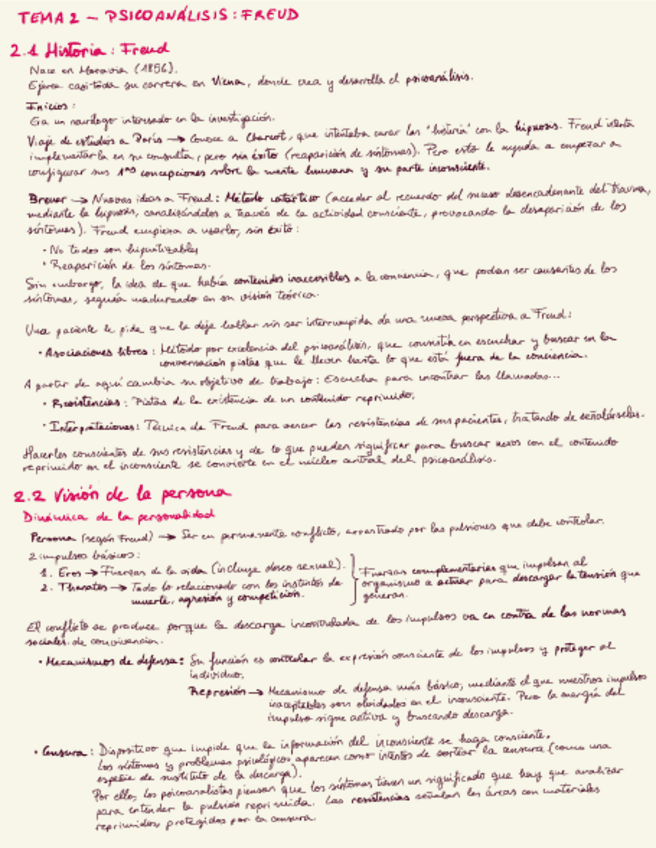 TEMA 2 – PSICOANÁLISIS: FREUD
2.1 Historia: Freud
Nace en Moravia (1856).
Ejerce casi toda su carrera en Viena, donde crea y desarrolla el psicoanálisis.
Inicios:
Era un neurólogo interesado en la investigación.
Viaje de estudios a París → Conoce a Charcot, que intentaba curar las "histeria" con la hipnosis. Freud intenta
implementarla en su consulta, pero sin éxito (reaparición de síntomas). Pero esto le ayuda a empezar a
configurar sus 1as concepciones sobre la mente humana y su parte inconsciente.
Breuer → Nuevas ideas a Freud: Método catártico (acceder al recuerdo del suceso desencadenante del trauma,
mediante la hipnosis, canalizándolos a través de la actividad consciente, provocando la desaparición de los
síntomas). Freud empieza a usarlo, sin éxito:
• No todos son hipnotizables
• Reaparición de los síntomas.
Sin embargo, la idea de que había contenidos inaccesibles a la conciencia, que podían ser causantes de los
síntomas, seguía madurando en su visión teórica.
Una paciente le pide que la deje hablar sin ser interrumpida da una nueva perspectiva a Freud:
• Asociaciones libres: Método por excelencia del psicoanálisis, que consistía en escuchar y buscar en la
conversación pistas que le lleven hasta lo que está fuera de la conciencia.
A partir de aquí cambia su objetivo de trabajo: Escucha para encontrar las llamadas...
• Resistencias: Pistas de la existencia de un contenido reprimido.
• Interpretaciones: Técnica de Freud para vencer las resistencias de sus pacientes, tratando de señalárselas.
Hacerles conscientes de sus resistencias y de lo que pueden significar para buscar nexos con el contenido
reprimido en el inconsciente se convierte en el núcleo central del psicoanálisis.
2.2 Visión de la persona
Dinámica de la personalidad
Persona (según Freud) → Ser en permanente conflicto, arrastrado por las pulsiones que debe controlar.
2 impulsos básicos:
1. Eros → Fuerzas de la vida (incluye deseo sexual).
2. Thanatos → Todo lo relacionado con los instintos de
muerte, agresión y competición.
Fuerzas complementarias que impulsan al
organismo a actuar para descargar la tensión que
generan.
El conflicto se produce porque la descarga incontrolada de los impulsos va en contra de las normas
sociales de convivencia.
• Mecanismos de defensa: Su función es controlar la expresión consciente de los impulsos y proteger al
individuo.
Represión → Mecanismo de defensa más básico, mediante el que nuestros impulsos
inaceptables son olvidados en el inconsciente. Pero la energía del
impulso sigue activa y buscando descarga.
• Censura: Dispositivo que impide que la información del inconsciente se haga consciente.
Los síntomas y problemas psicológicos aparecen como intentos de sortear la censura (como una
especie de sustituto de la descarga).
Por ello, los psicoanalistas piensan que los síntomas tienen un significado que hay que analizar
para entender la pulsión reprimida. Las resistencias señalan las áreas con materiales
reprimidos, protegidos por la censura.